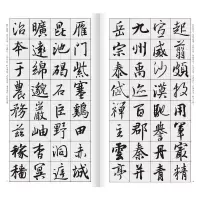 起翦頗牧用軍最精
宣威沙漠馳譽丹青
九州禹跡百郡秦并
岳宗泰岱禪主雲亭
雁門紫塞雞田赤城
昆池碣石巨野洞庭
曠遠綿邈巖岫杳冥
治本於農務茲稼穡